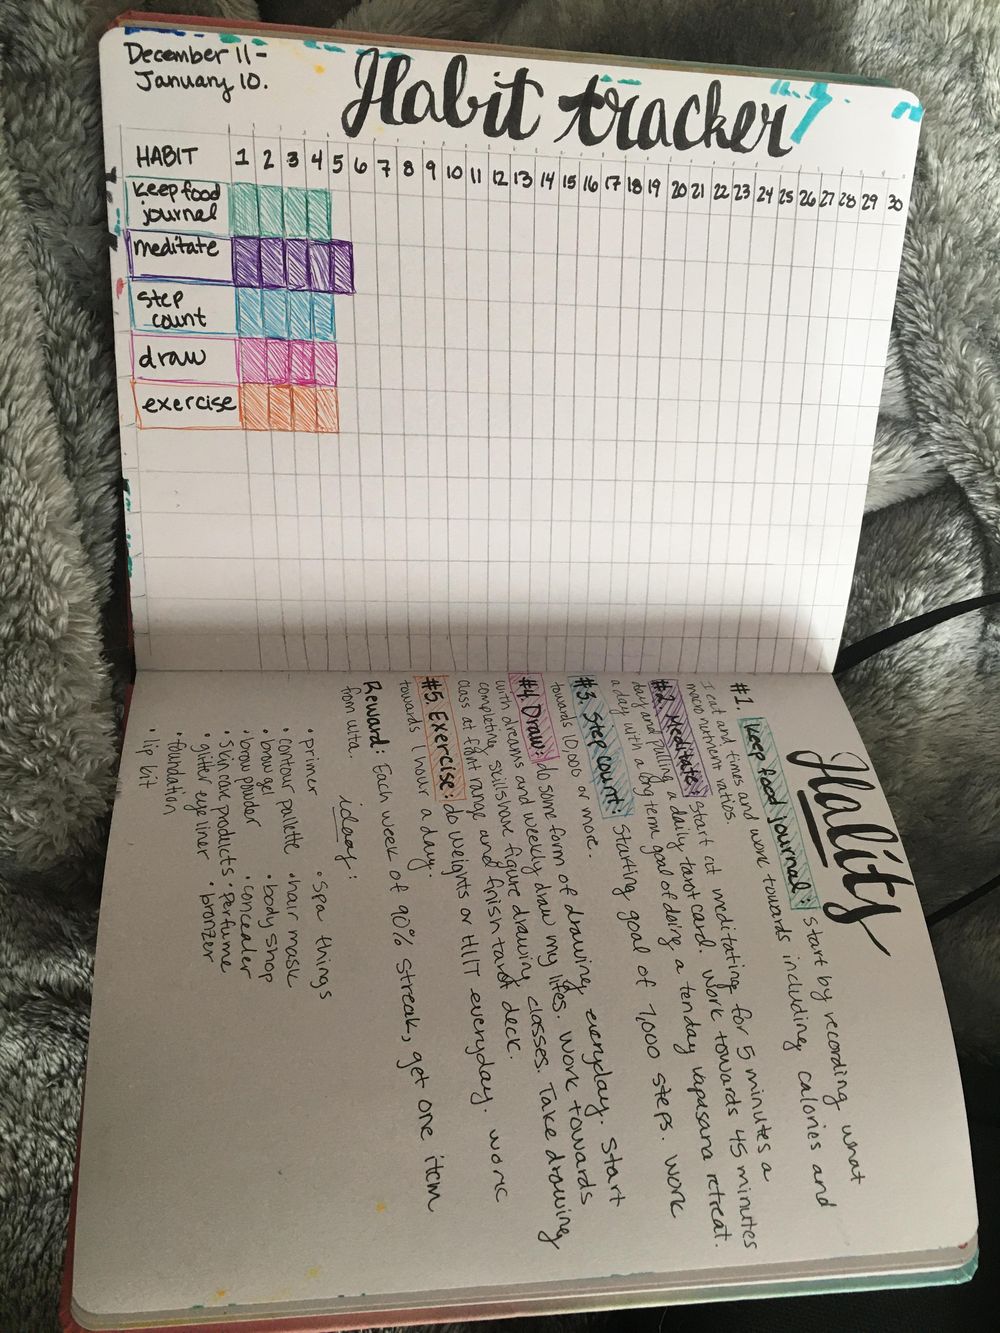 December 11 -
January 10.
Habit tracker
HABIT 1 2 3 4 5 6 7 8 9 10 11 12 13 14 15 16 17 18 19 20 21 22 23 24 25 26 27 28 29 30
keep food
journal
meditate
step
count
draw
exercise
Habits
#1. keep food journal: Start by recording what
I eat and times and work towards including calories and
macro nutrient ratios.
#2. Meditate: Start at meditating for 5 minutes a
day and pulling a daily tarot card. Work towards 45 minutes
a day with a long term goal of doing a ten day vapasana retreat.
#3. Step count: Starting goal of 7,000 steps. Work
towards 10,000 or more.
#4. Draw: do some form of drawing everyday. Start
with dreams and weekly draw my lifes. Work towards
completing skillshare figure drawing classes. Take drawing
class at front range and finish tarot deck.
#5. Exercise: do weights or HIIT everyday. work
towards 1 hour a day.
Reward: Each week of 90% streak, get one item
from ulta.
ideas:
• primer
• contour pallette
• brow gel
• brow powder
• skin care products
• glitter eye liner
• foundation
• lip kit
• spa things
• hair mask
• body shop
• concealer
• perfume
• bronzer